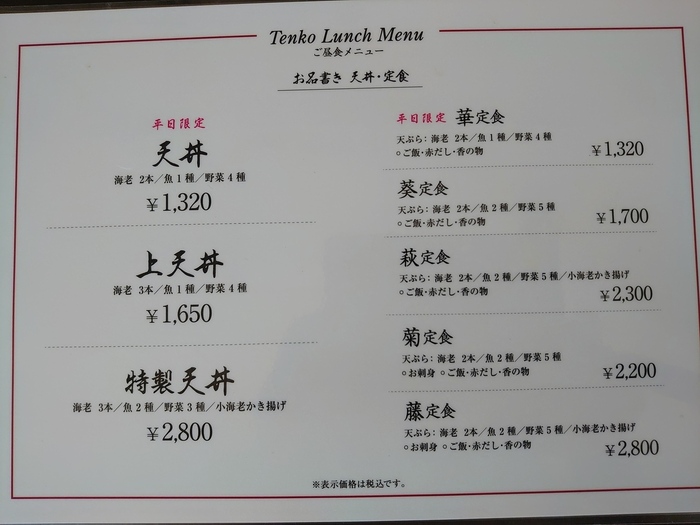 Tenko Lunch Menu
ご昼食メニュー
お品書き 天丼・定食
平日限定
天丼
海老 2本／魚1種／野菜4種
¥1,320
上天丼
海老 3本／魚1種／野菜4種
¥1,650
特製天丼
海老 3本／魚2種／野菜3種／小海老かき揚げ
¥2,800
平日限定 華定食
天ぷら: 海老 2本／魚1種／野菜4種
○ご飯・赤だし・香の物
¥1,320
葵定食
天ぷら: 海老 2本／魚2種／野菜5種
○ご飯・赤だし・香の物
¥1,700
萩定食
天ぷら: 海老 2本／魚2種／野菜5種／小海老かき揚げ
○ご飯・赤だし・香の物
¥2,300
菊定食
天ぷら: 海老 2本／魚2種／野菜5種
○お刺身 ○ご飯・赤だし・香の物
¥2,200
藤定食
天ぷら: 海老 2本／魚2種／野菜5種／小海老かき揚げ
○お刺身 ○ご飯・赤だし・香の物
¥2,800
※表示価格は税込です。